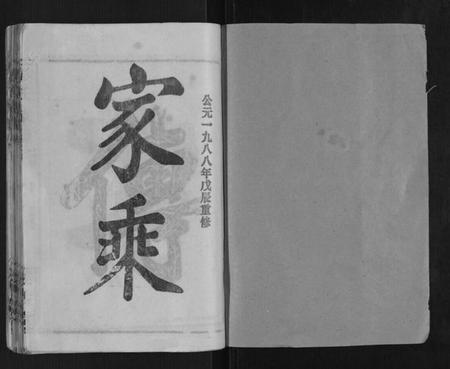 公元一九八八年戊辰重修
家乘